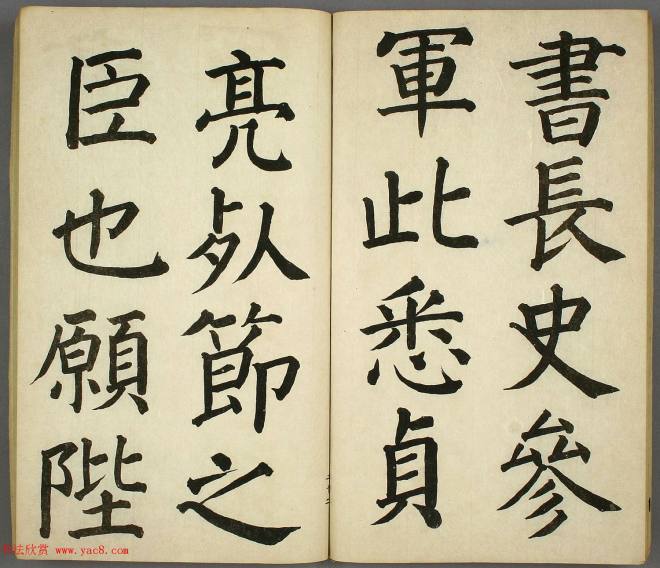 書長史參
軍此悉貞
亮死節之
臣也願陛
书法欣赏 www.yac8.com